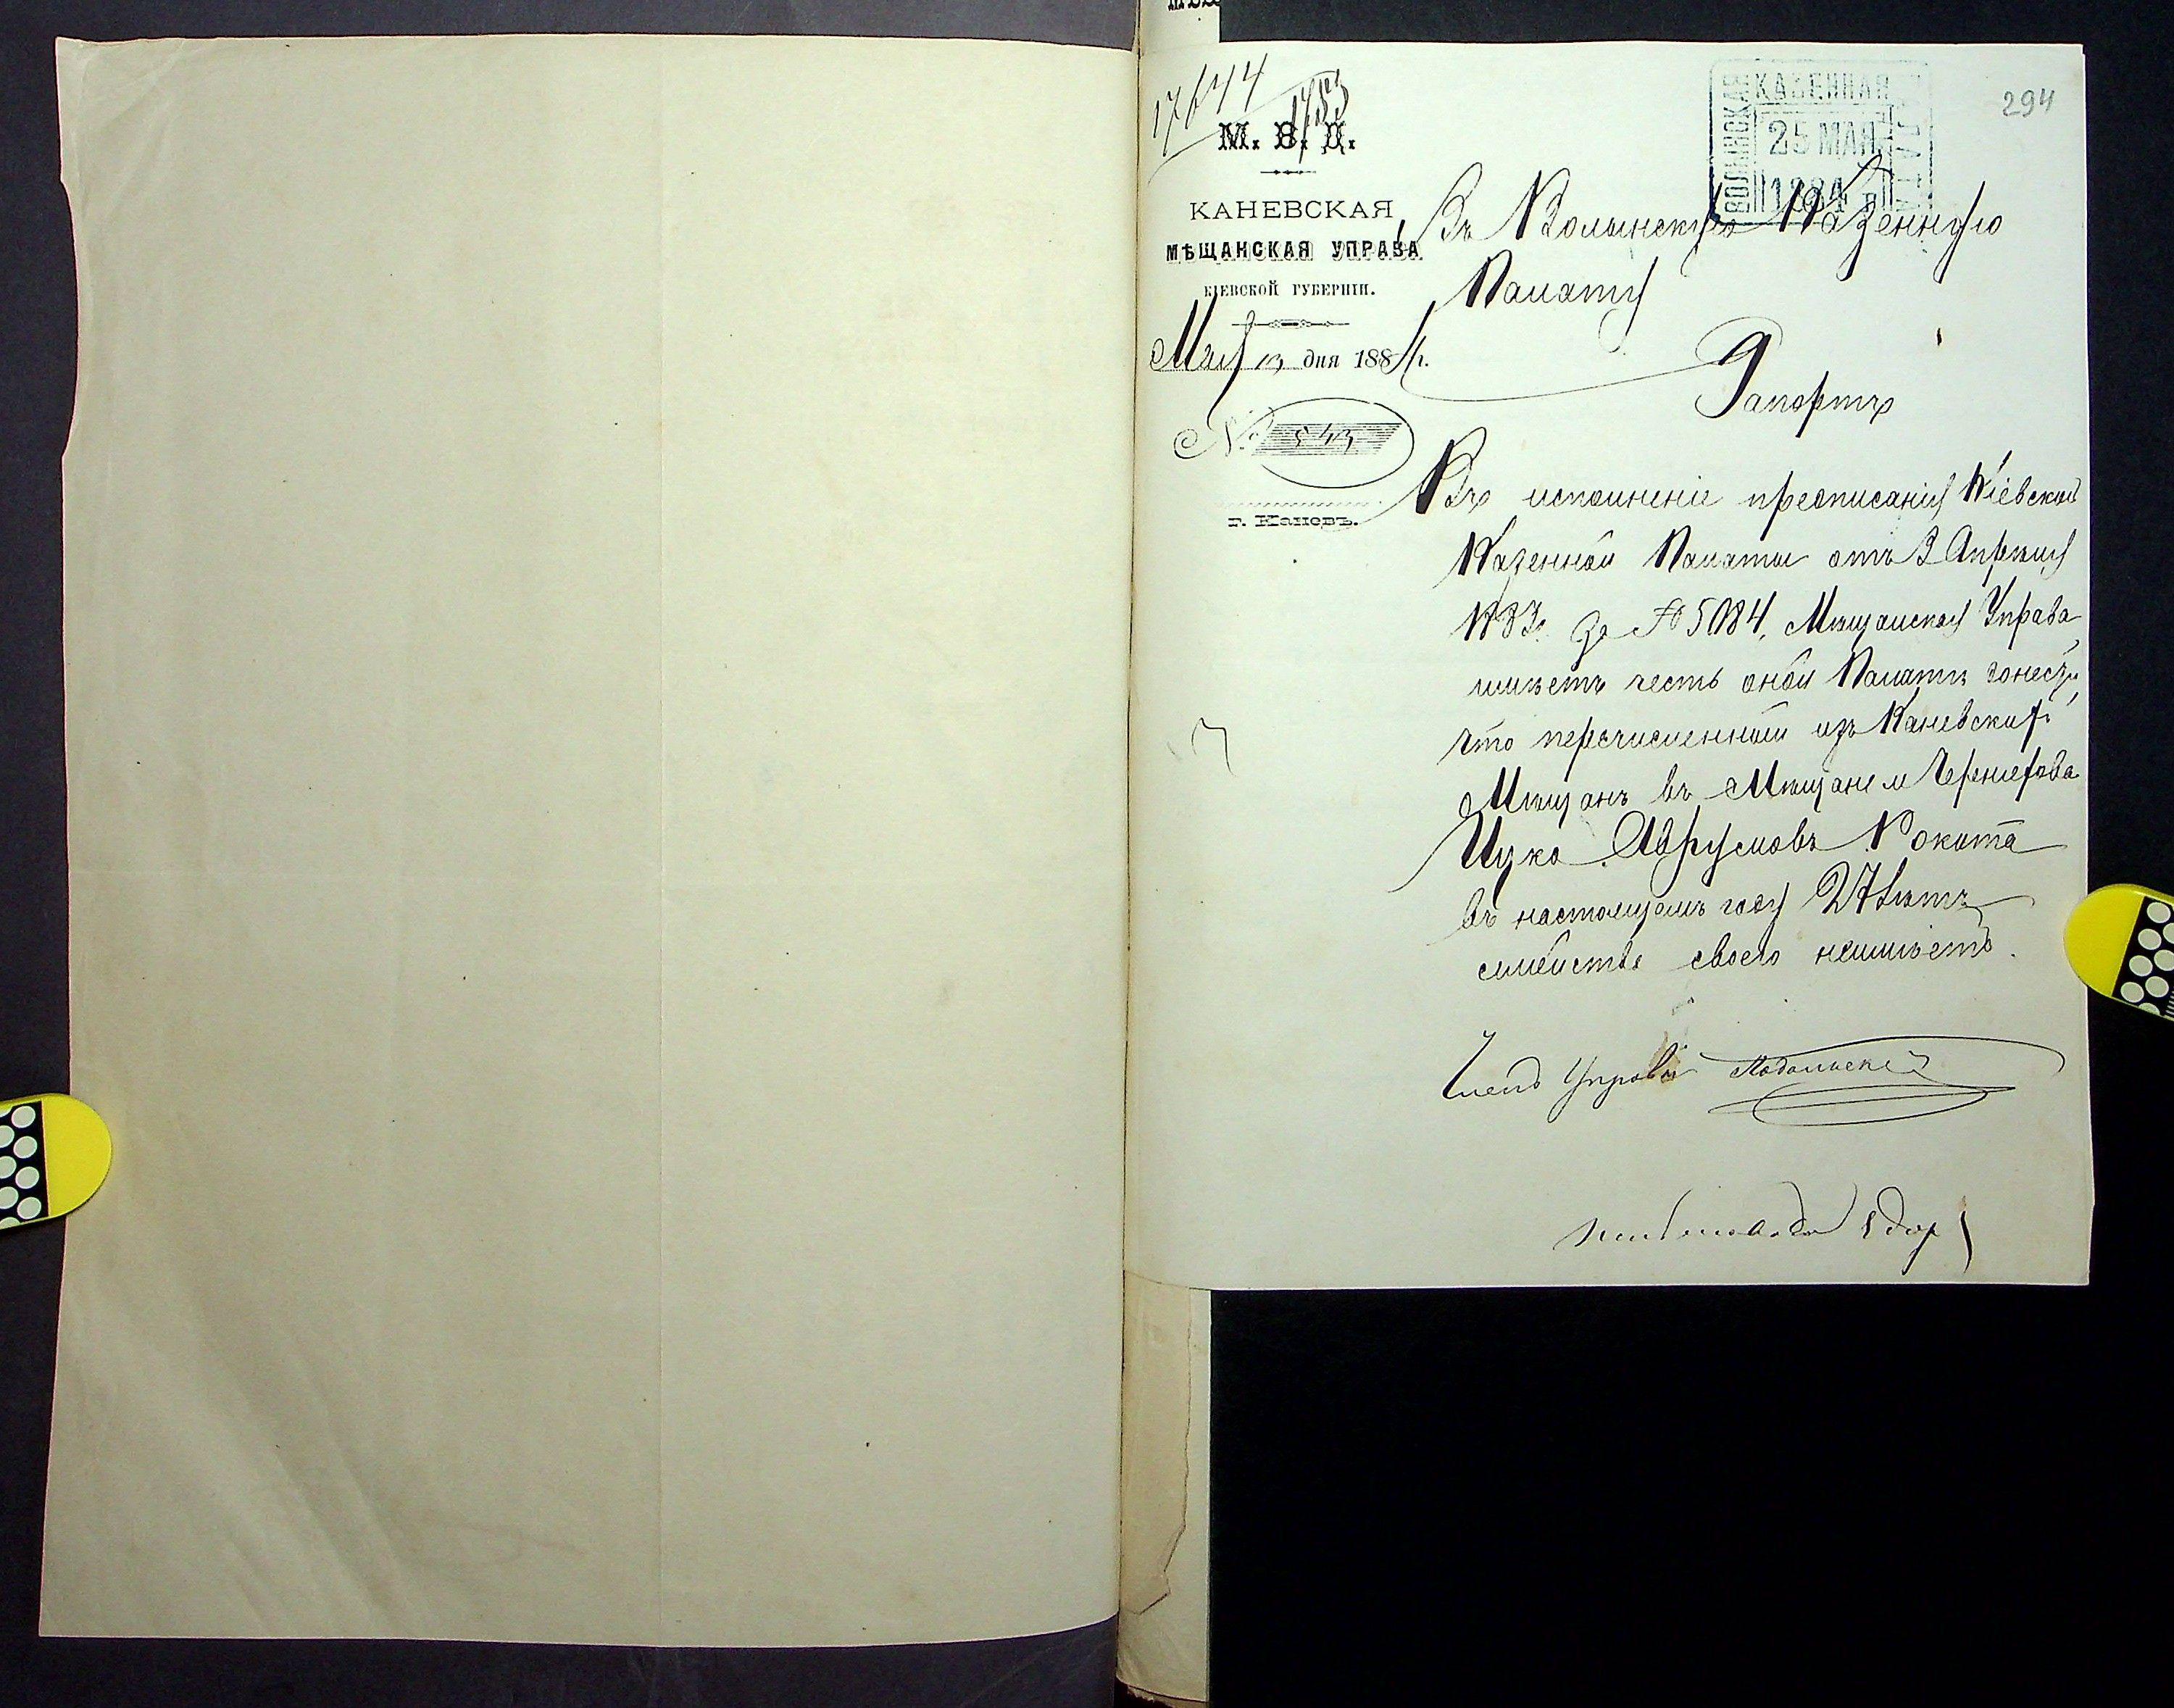 294
17644
1783
М. В. Д.
КАНЕВСКАЯ
МѢЩАНСКАЯ УПРАВА
КІЕВСКОЙ ГУБЕРНІИ.
Мая 13 дня 1884 г.
№ 543
г. Каневъ.
ВОЛЫНСКАЯ КАЗЕННАЯ ПАЛАТА
25 МАЯ
1884
Въ Волынскую Казенную
Палату
Рапортъ
Въ исполненіе предписанія Кіевской
Казенной Палаты отъ 3 Апрѣля
1883 г. за № 5084, Мѣщанская Управа
имѣетъ честь оной Палатѣ донести,
что перечисленный изъ Каневскихъ
Мѣщанъ въ Мѣщане м Чернехова
Ицко Аврумовъ Рокита
въ настоящемъ году 27 Лѣтъ
семейства своего неимѣетъ.
Членъ Управы Подольскій